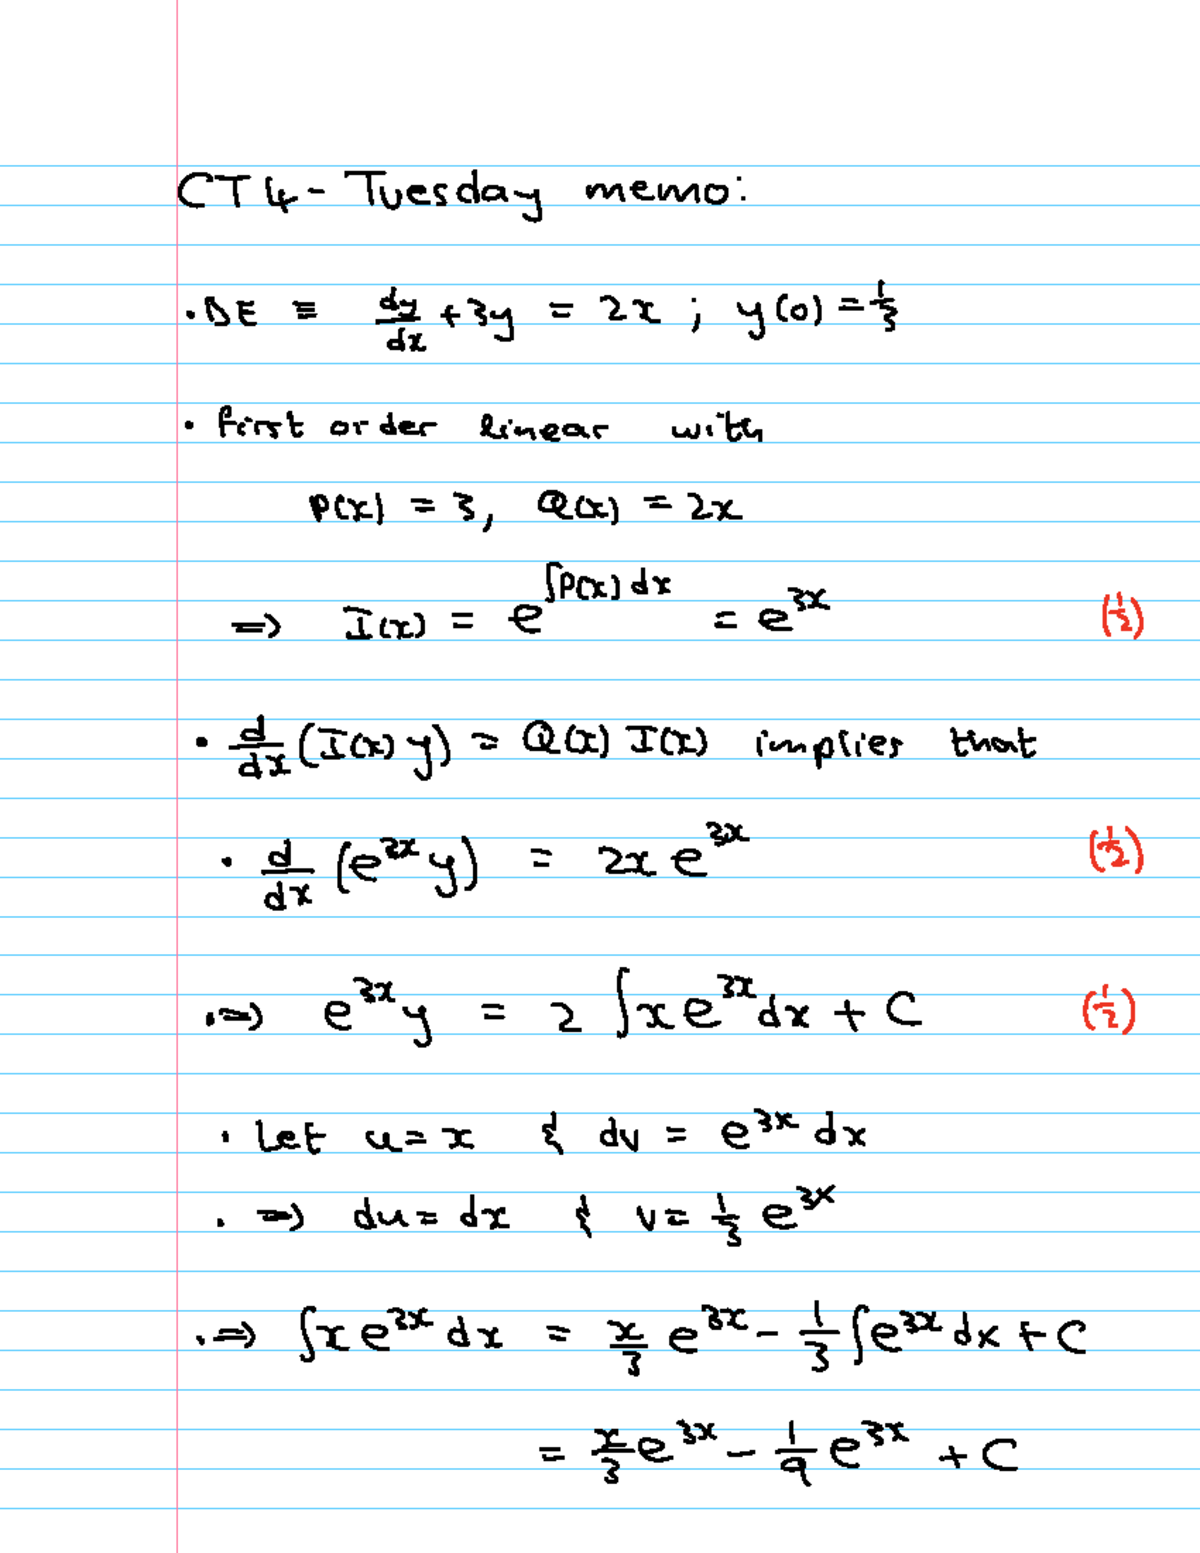 CT4 - Tuesday memo:
• DE ≡ dy/dx + 3y = 2x ; y(0) = 1/3
• first order linear with
P(x) = 3, Q(x) = 2x
⇒ I(x) = e^{∫P(x)dx} = e^{3x} (1/2)
• d/dx (I(x) y) = Q(x) I(x) implies that
• d/dx (e^{3x} y) = 2x e^{3x} (1/2)
• ⇒ e^{3x} y = 2 ∫x e^{3x} dx + C (1/2)
• Let u = x & dv = e^{3x} dx
• ⇒ du = dx & v = 1/3 e^{3x}
• ⇒ ∫x e^{3x} dx = x/3 e^{3x} - 1/3 ∫e^{3x} dx + C
= x/3 e^{3x} - 1/9 e^{3x} + C